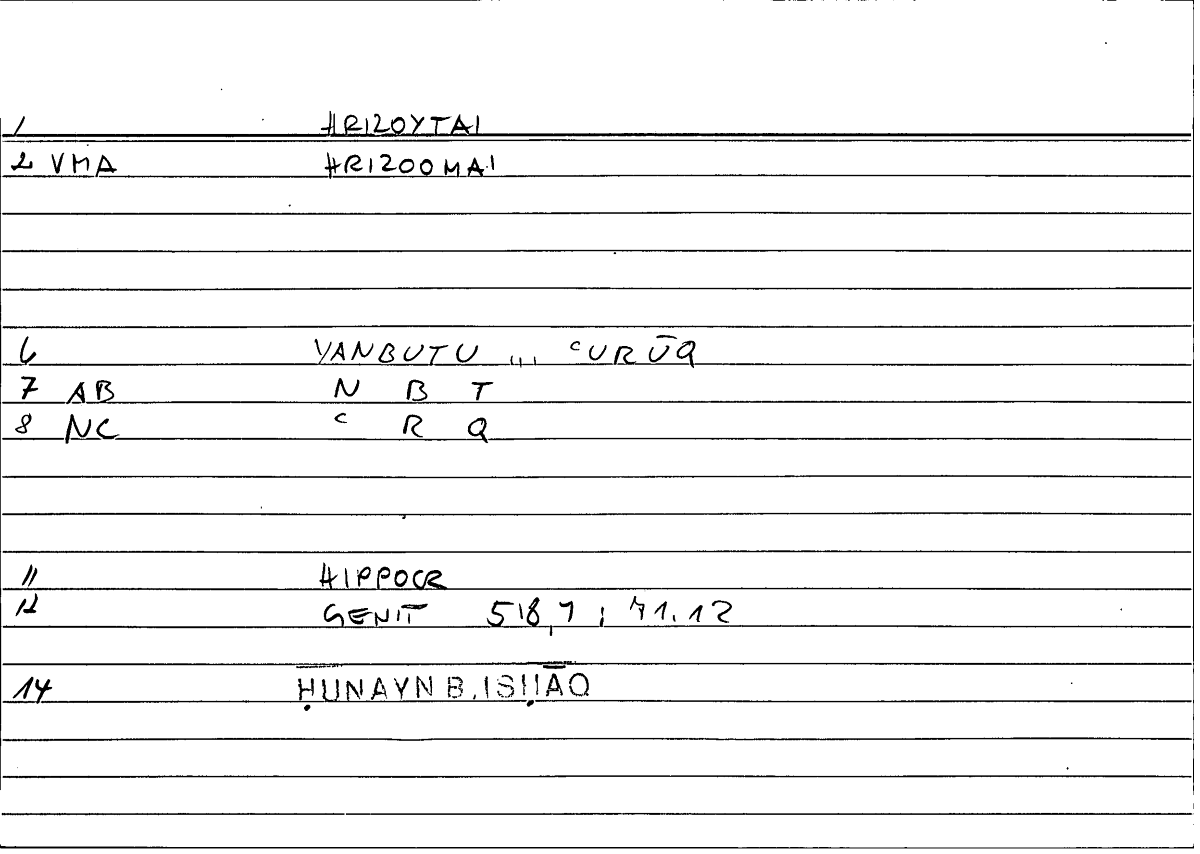 1 HRIZOYTAI
2 VMA HRIZOOMAI
6 YANBUTU ... ʿURŪQ
7 AB N B T
8 NC ʿ R Q
11 HIPPOCR
12 GENIT 518,7 ; 71.12
14 ḤUNAYN B. ISḤĀQ